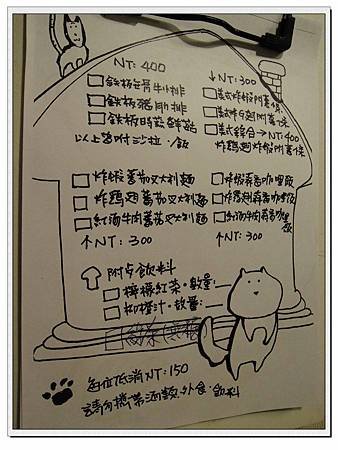 NT: 400
□鉄板無骨牛小排
□鉄板豬肋排
□鉄板時蔬鮮菇
以上皆附沙拉、飯
↓NT: 300
□美式炸蝦附薯條
□美式炸雞翅附薯條
□美式綜合→NT: 400
炸雞翅炸蝦附薯條
□炸蝦蕃茄义大利麵
□炸雞翅蕃茄义大利麵
□紅酒牛肉蕃茄义大利麵
↑NT: 300
□炸蝦蔬香咖哩飯
□炸雞翅蔬香咖哩飯
□紅酒牛肉蔬香咖哩飯
↑NT: 300
附步飲料
□檸檬紅茶。數量:
□柳橙汁。數量:
每位低消NT: 150
請勿攜帶酒類、外食、飲料